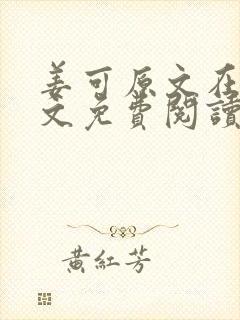 姜可原文在
文免費閱讀
黃紅芳